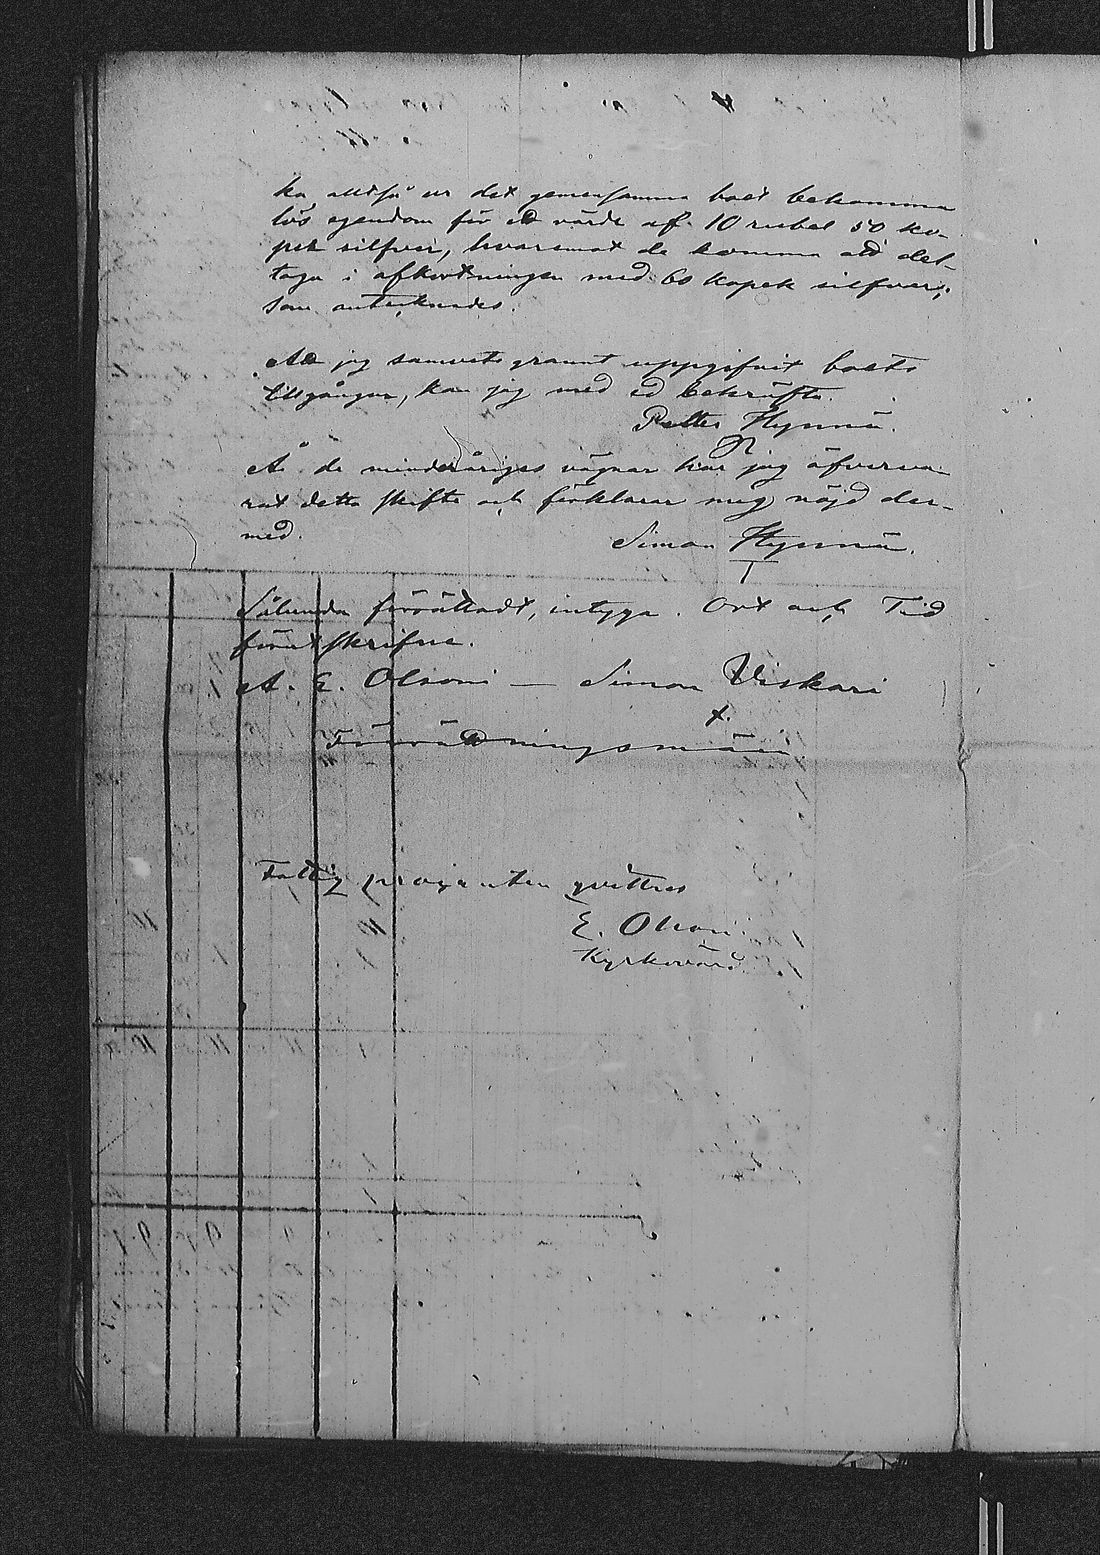 ka, alltså ur det gemensamma boet bekomma
lös egendom för ett värde af 10 rubel 50 ko-
pek silfver, hvaremot de komma att del-
taga i afkortningen med 60 kopek silfver;
som antecknades.
Att jag samvetsgrannt uppgifvit boets
tillgångar, kan jag med ed bekräfta.
Petter Hynnä.
Å de minderåriges vägnar har jag öfverva-
rat detta skifte och förklarar mig nöjd der-
med.
Simon Hynnä.
Sålunda förrättadt, intyga. Ort och Tid
förutskrifne.
A. E. Olsoni — Simon Viskari
x.
Förrättningsmän
Fattig procenten qvitteras
E. Olsoni
Kyrkovärd.